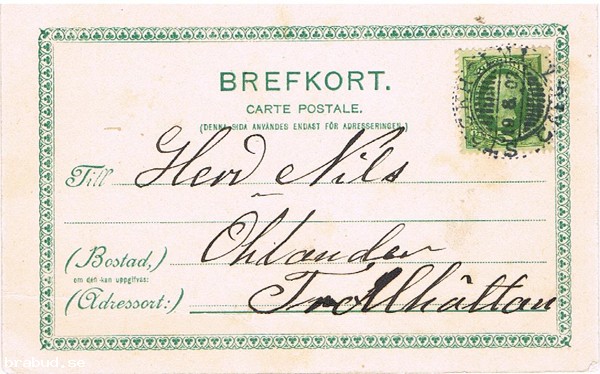 BREFKORT.
CARTE POSTALE.
(DENNA SIDA ANVÄNDES ENDAST FÖR ADRESSERINGEN.)
Till Herr Nils
Ohlander
(Bostad,)
om den kan uppgifvas:
(Adressort:) Trollhättan
brabud.se